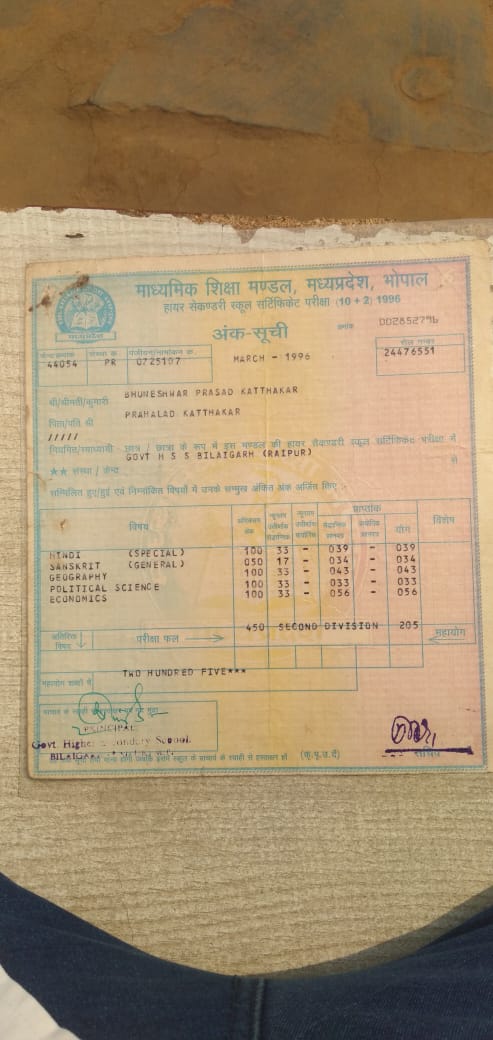 माध्यमिक शिक्षा मण्डल, मध्यप्रदेश, भोपाल
हायर सेकण्डरी स्कूल सर्टिफिकेट परीक्षा (10 + 2) 1996
अंक-सूची
क्रमांक D02852796
संस्था क्र. रोल नम्बर
44054 PR 0725107 MARCH - 1996 24476551
श्री/श्रीमती/कुमारी BHUNESHWAR PRASAD KATTHAKAR
पिता/पति श्री PRAHALAD KATTHAKAR
/////
नियमित/स्वाध्यायी छात्र / छात्रा के रूप में इस मण्डल की हायर सेकण्डरी स्कूल सर्टिफिकेट परीक्षा में
GOVT H S S BILAIGARH (RAIPUR)
★★ संस्था / केन्द्र से
सम्मिलित हुए/हुई एवं निम्नांकित विषयों में उनके सम्मुख अंकित अंक अर्जित किए :-
प्राप्तांक
विषय योग विशेष
HINDI (SPECIAL) 100 33 - 039 - 039
SANSKRIT (GENERAL) 050 17 - 034 - 034
GEOGRAPHY 100 33 - 043 - 043
POLITICAL SCIENCE 100 33 - 033 - 033
ECONOMICS 100 33 - 056 - 056
450 SECOND DIVISION 205
अतिरिक्त विषय परीक्षा फल महायोग
महायोग शब्दों में TWO HUNDRED FIVE***
PRINCIPAL
Govt. Higher School
सचिव